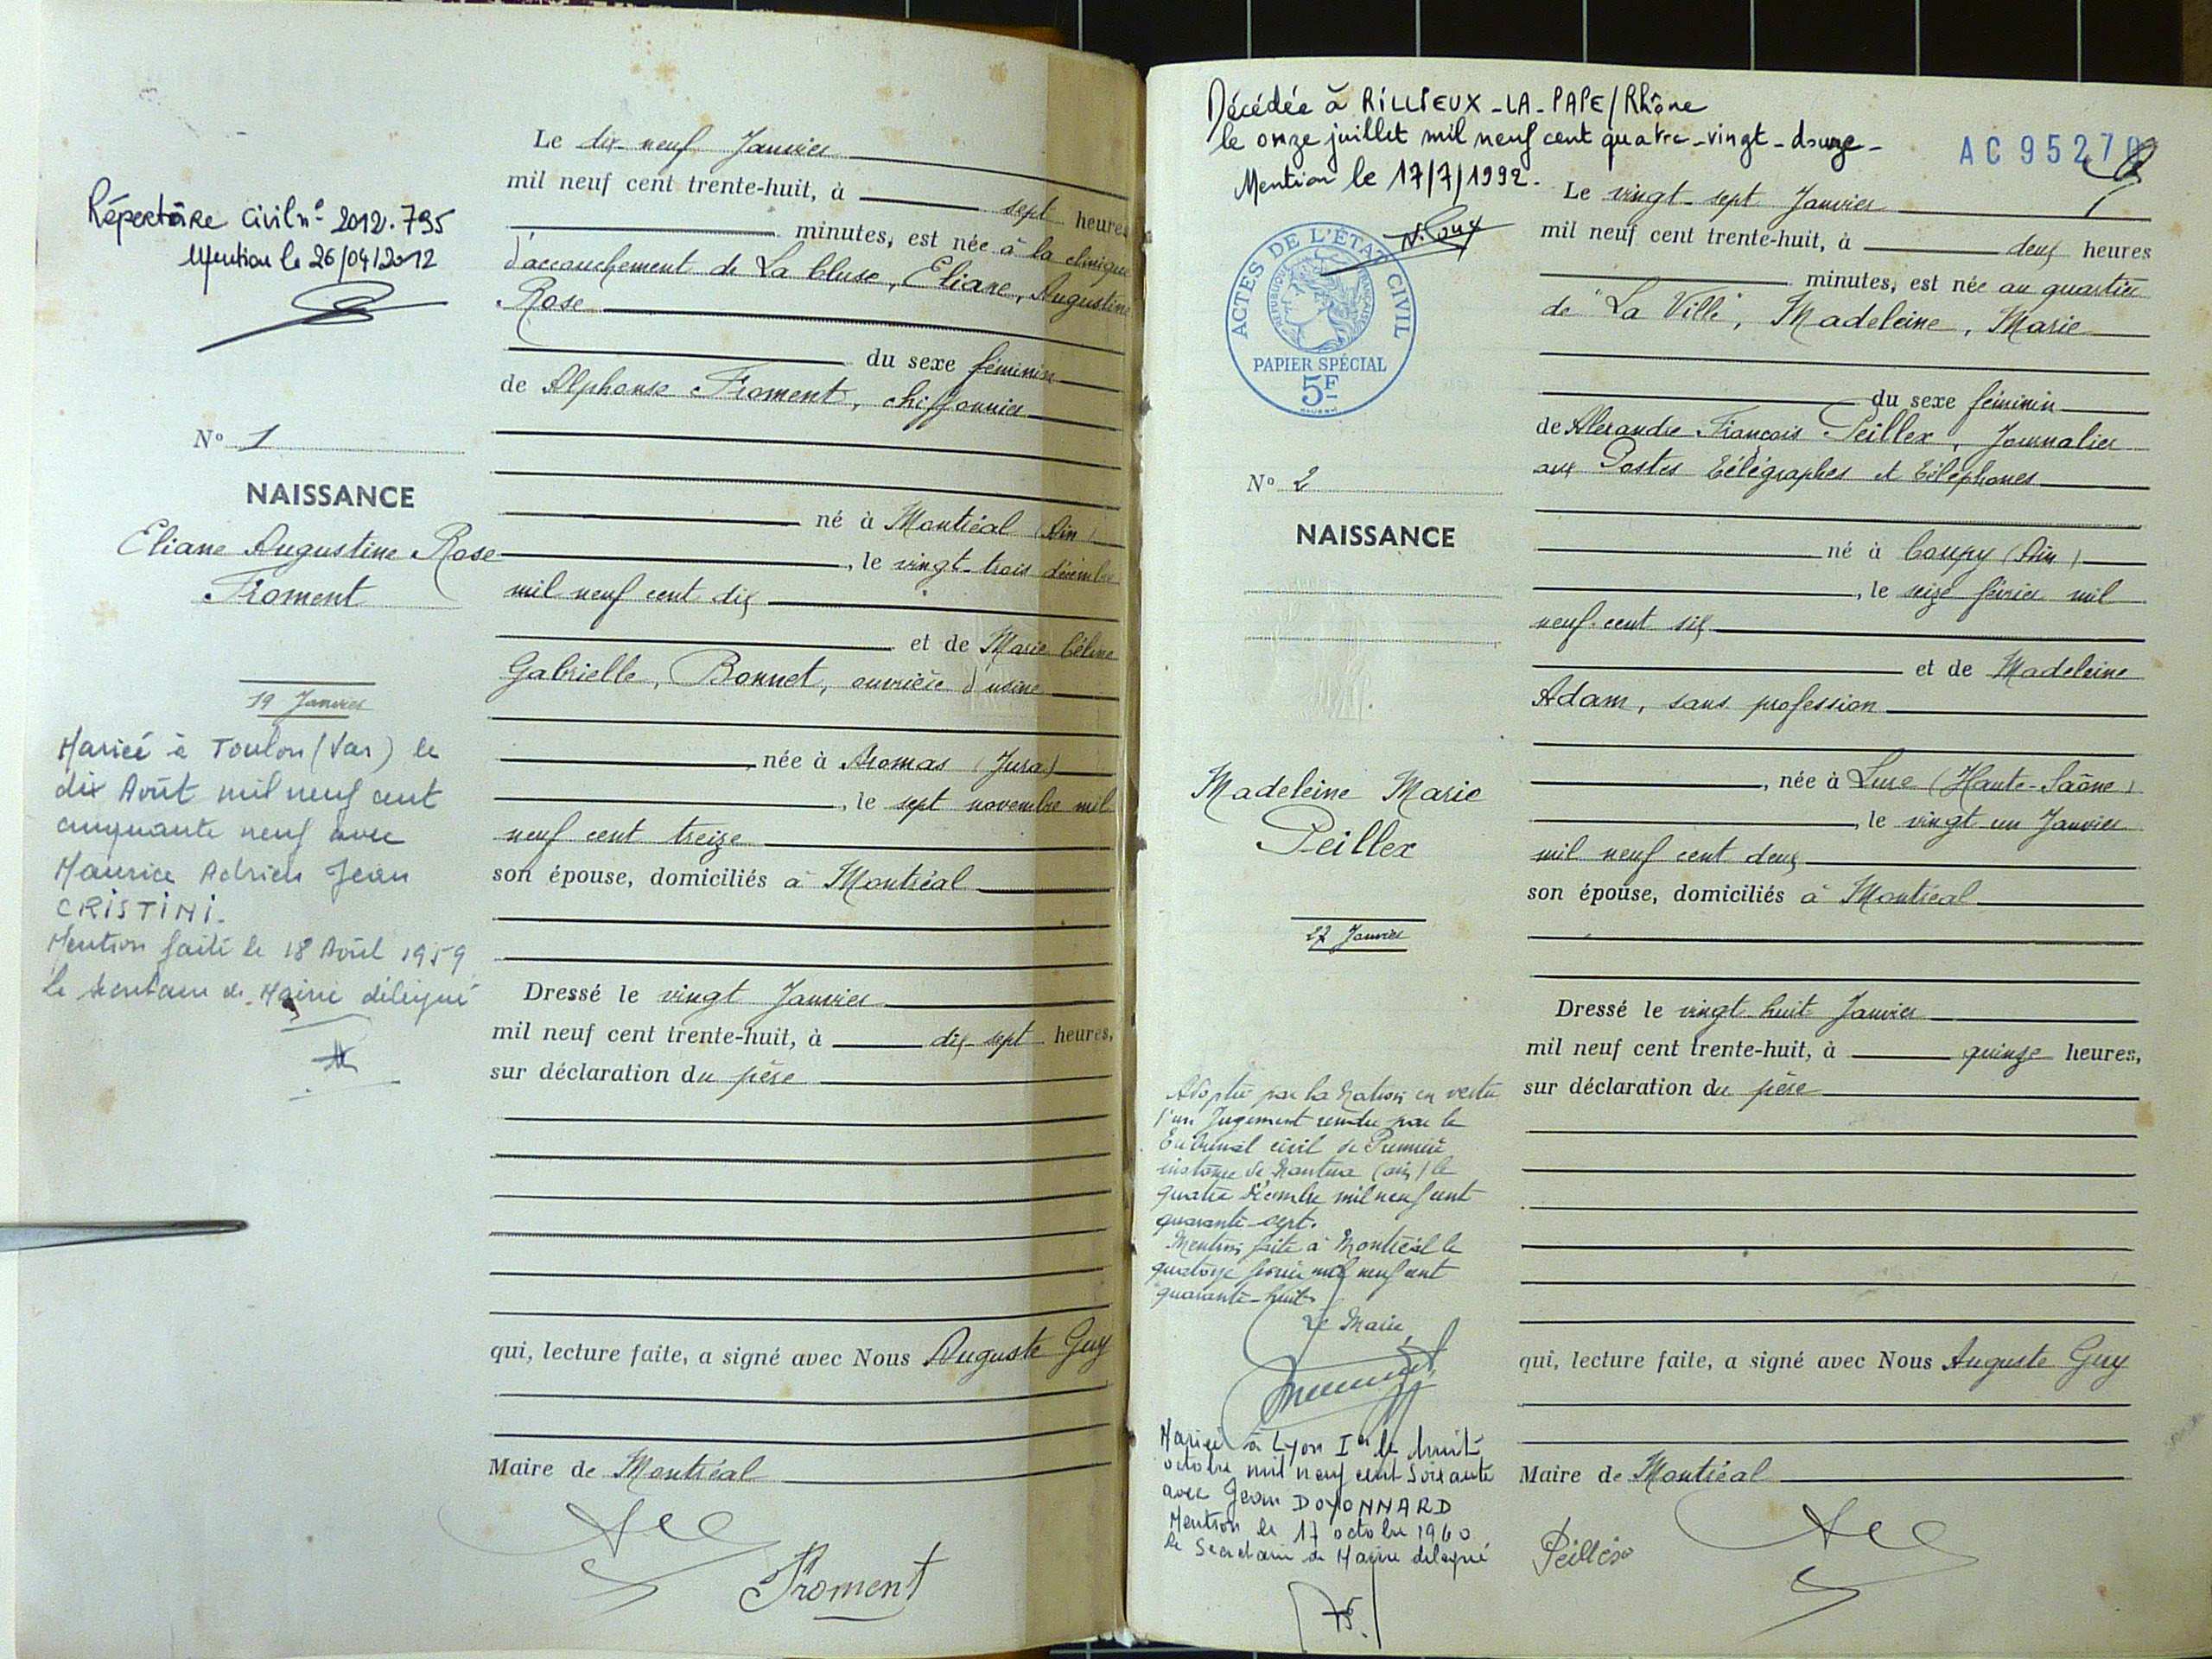 Répertoire Civil n° 2012.795
Mention le 26/04/2012
N° 1
NAISSANCE
Eliane Augustine Rose
Froment
19 Janvier
Mariée à Toulon (Var) le
dix Août mil neuf cent
cinquante neuf avec
Maurice Adrien Jean
CRISTINI.
Mention faite le 18 Août 1959
Le Secrétaire de Mairie délégué
Le dix-neuf Janvier
mil neuf cent trente-huit, à sept heures
minutes, est née à la clinique
d'accouchement de La Cluse, Eliane, Augustine
Rose
du sexe féminin
de Alphonse Froment, chiffonnier
né à Montréal (Ain)
, le vingt-trois décembre
mil neuf cent dix
et de Marie Céline
Gabrielle, Bonnet, ouvrière d'usine
, née à Aromas (Jura)
, le sept novembre mil
neuf cent treize
son épouse, domiciliés à Montréal
Dressé le vingt Janvier
mil neuf cent trente-huit, à dix-sept heures,
sur déclaration du père
qui, lecture faite, a signé avec Nous Auguste Guy
Maire de Montréal
Froment
Décédée à RILLIEUX-LA-PAPE/Rhône
le onze juillet mil neuf cent quatre-vingt-douze-
Mention le 17/7/1992.
AC 95270
ACTES DE L'ÉTAT CIVIL
RÉPUBLIQUE FRANÇAISE
PAPIER SPÉCIAL
5F
N° 2
NAISSANCE
Madeleine Marie
Peillex
27 Janvier
Adoptée par la Nation en vertu
d'un Jugement rendu par le
Tribunal civil de Première
instance de Nantua (ain) le
quatre décembre mil neuf cent
quarante-sept.
Mention faite à Montréal le
quatorze février mil neuf cent
quarante-huit.
Le Maire,
Mariée à Lyon Ier le huit
octobre mil neuf cent soixante
avec Jean DOYONNARD
Mention le 17 octobre 1960
le Secrétaire de Mairie délégué
Le vingt-sept Janvier
mil neuf cent trente-huit, à deux heures
minutes, est née au quartier
de "La Ville", Madeleine, Marie
du sexe féminin
de Alexandre François Peillex, Journalier
aux Postes Télégraphes et Téléphones
né à Coupy (Ain)
, le seize février mil
neuf cent six
et de Madeleine
Adam, sans profession
, née à Lure (Haute-Saône)
, le vingt-un Janvier
mil neuf cent deux
son épouse, domiciliés à Montréal
Dressé le vingt-huit Janvier
mil neuf cent trente-huit, à quinze heures,
sur déclaration du père
qui, lecture faite, a signé avec Nous Auguste Guy
Maire de Montréal
Peillex